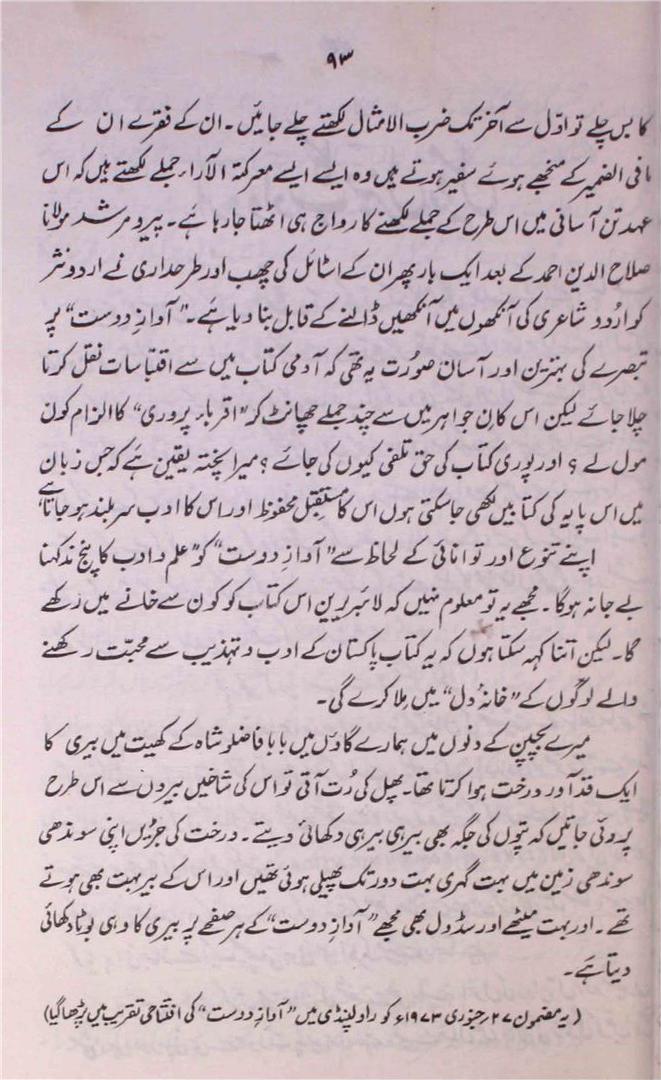 ۹۳
کا بس چلے تو اوّل سے آخر تک ضرب الامثال لکھتے چلے جائیں۔ ان کے فقرے ان کے
مافی الضمیر کے منجھے ہوئے سفیر ہوتے ہیں وہ ایسے ایسے معرکۃ الآراء جملے لکھتے ہیں کہ اس
عہد تن آسانی میں اس طرح کے جملے لکھنے کا رواج ہی اٹھتا جا رہا ہے۔ پیر و مرشد مولانا
صلاح الدین احمد کے بعد ایک بار پھر ان کے اسٹائل کی چھب اور طرحداری نے اردو نثر
کو اردو شاعری کی آنکھوں میں آنکھیں ڈالنے کے قابل بنا دیا ہے۔ "آوازِ دوست" پر
تبصرے کی بہترین اور آسان صورت یہ تھی کہ آدمی کتاب میں سے اقتباسات نقل کرتا
چلا جائے لیکن اس کانِ جواہر میں سے چند جملے چھانٹ کر "اقربا پروری" کا الزام کون
مول لے؟ اور پوری کتاب کی حق تلفی کیوں کی جائے؟ میرا پختہ یقین ہے کہ جس زبان
میں اس پایہ کی کتابیں لکھی جا سکتی ہوں اس کا مستقبل محفوظ اور اس کا ادب سربلند ہو جاتا ہے
اپنے تنوع اور توانائی کے لحاظ سے "آوازِ دوست" کو "علم و ادب کا پنج ند کہنا
بے جا نہ ہو گا۔ مجھے یہ تو معلوم نہیں کہ لائبریرین اس کتاب کو کون سے خانے میں رکھے
گا۔ لیکن اتنا کہہ سکتا ہوں کہ یہ کتاب پاکستان کے ادب و تہذیب سے محبّت رکھنے
والے لوگوں کے "خانۂ دل" میں ملا کرے گی۔
میرے بچپن کے دنوں میں ہمارے گاؤں میں بابا فاضلو شاہ کے کھیت میں بیری کا
ایک قدآور درخت ہوا کرتا تھا۔ پھل کی رُت آتی تو اس کی شاخیں بیروں سے اس طرح
پروئی جاتیں کہ پتّوں کی جگہ بھی بیر ہی بیر ہی دکھائی دیتے۔ درخت کی جڑیں اپنی سوندھی
سوندھی زمین میں بہت گہری بہت دور تک پھیلی ہوئی تھیں اور اس کے بیر بہت بھی ہوتے
تھے۔ اور بہت میٹھے اور سڈول بھی مجھے "آوازِ دوست" کے ہر صفحے پر بیری کا وہی بوٹا دکھائی
دیتا ہے۔
(یہ مضمون ۲۷ر جنوری ۱۹۷۳ء کو راولپنڈی میں "آوازِ دوست" کی افتتاحی تقریب میں پڑھا گیا)